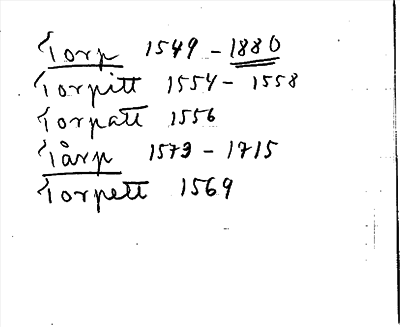 Torp 1549 - 1880
Torpitt 1554 - 1558
Torpatt 1556
Tårp 1573 - 1715
Torpett 1569